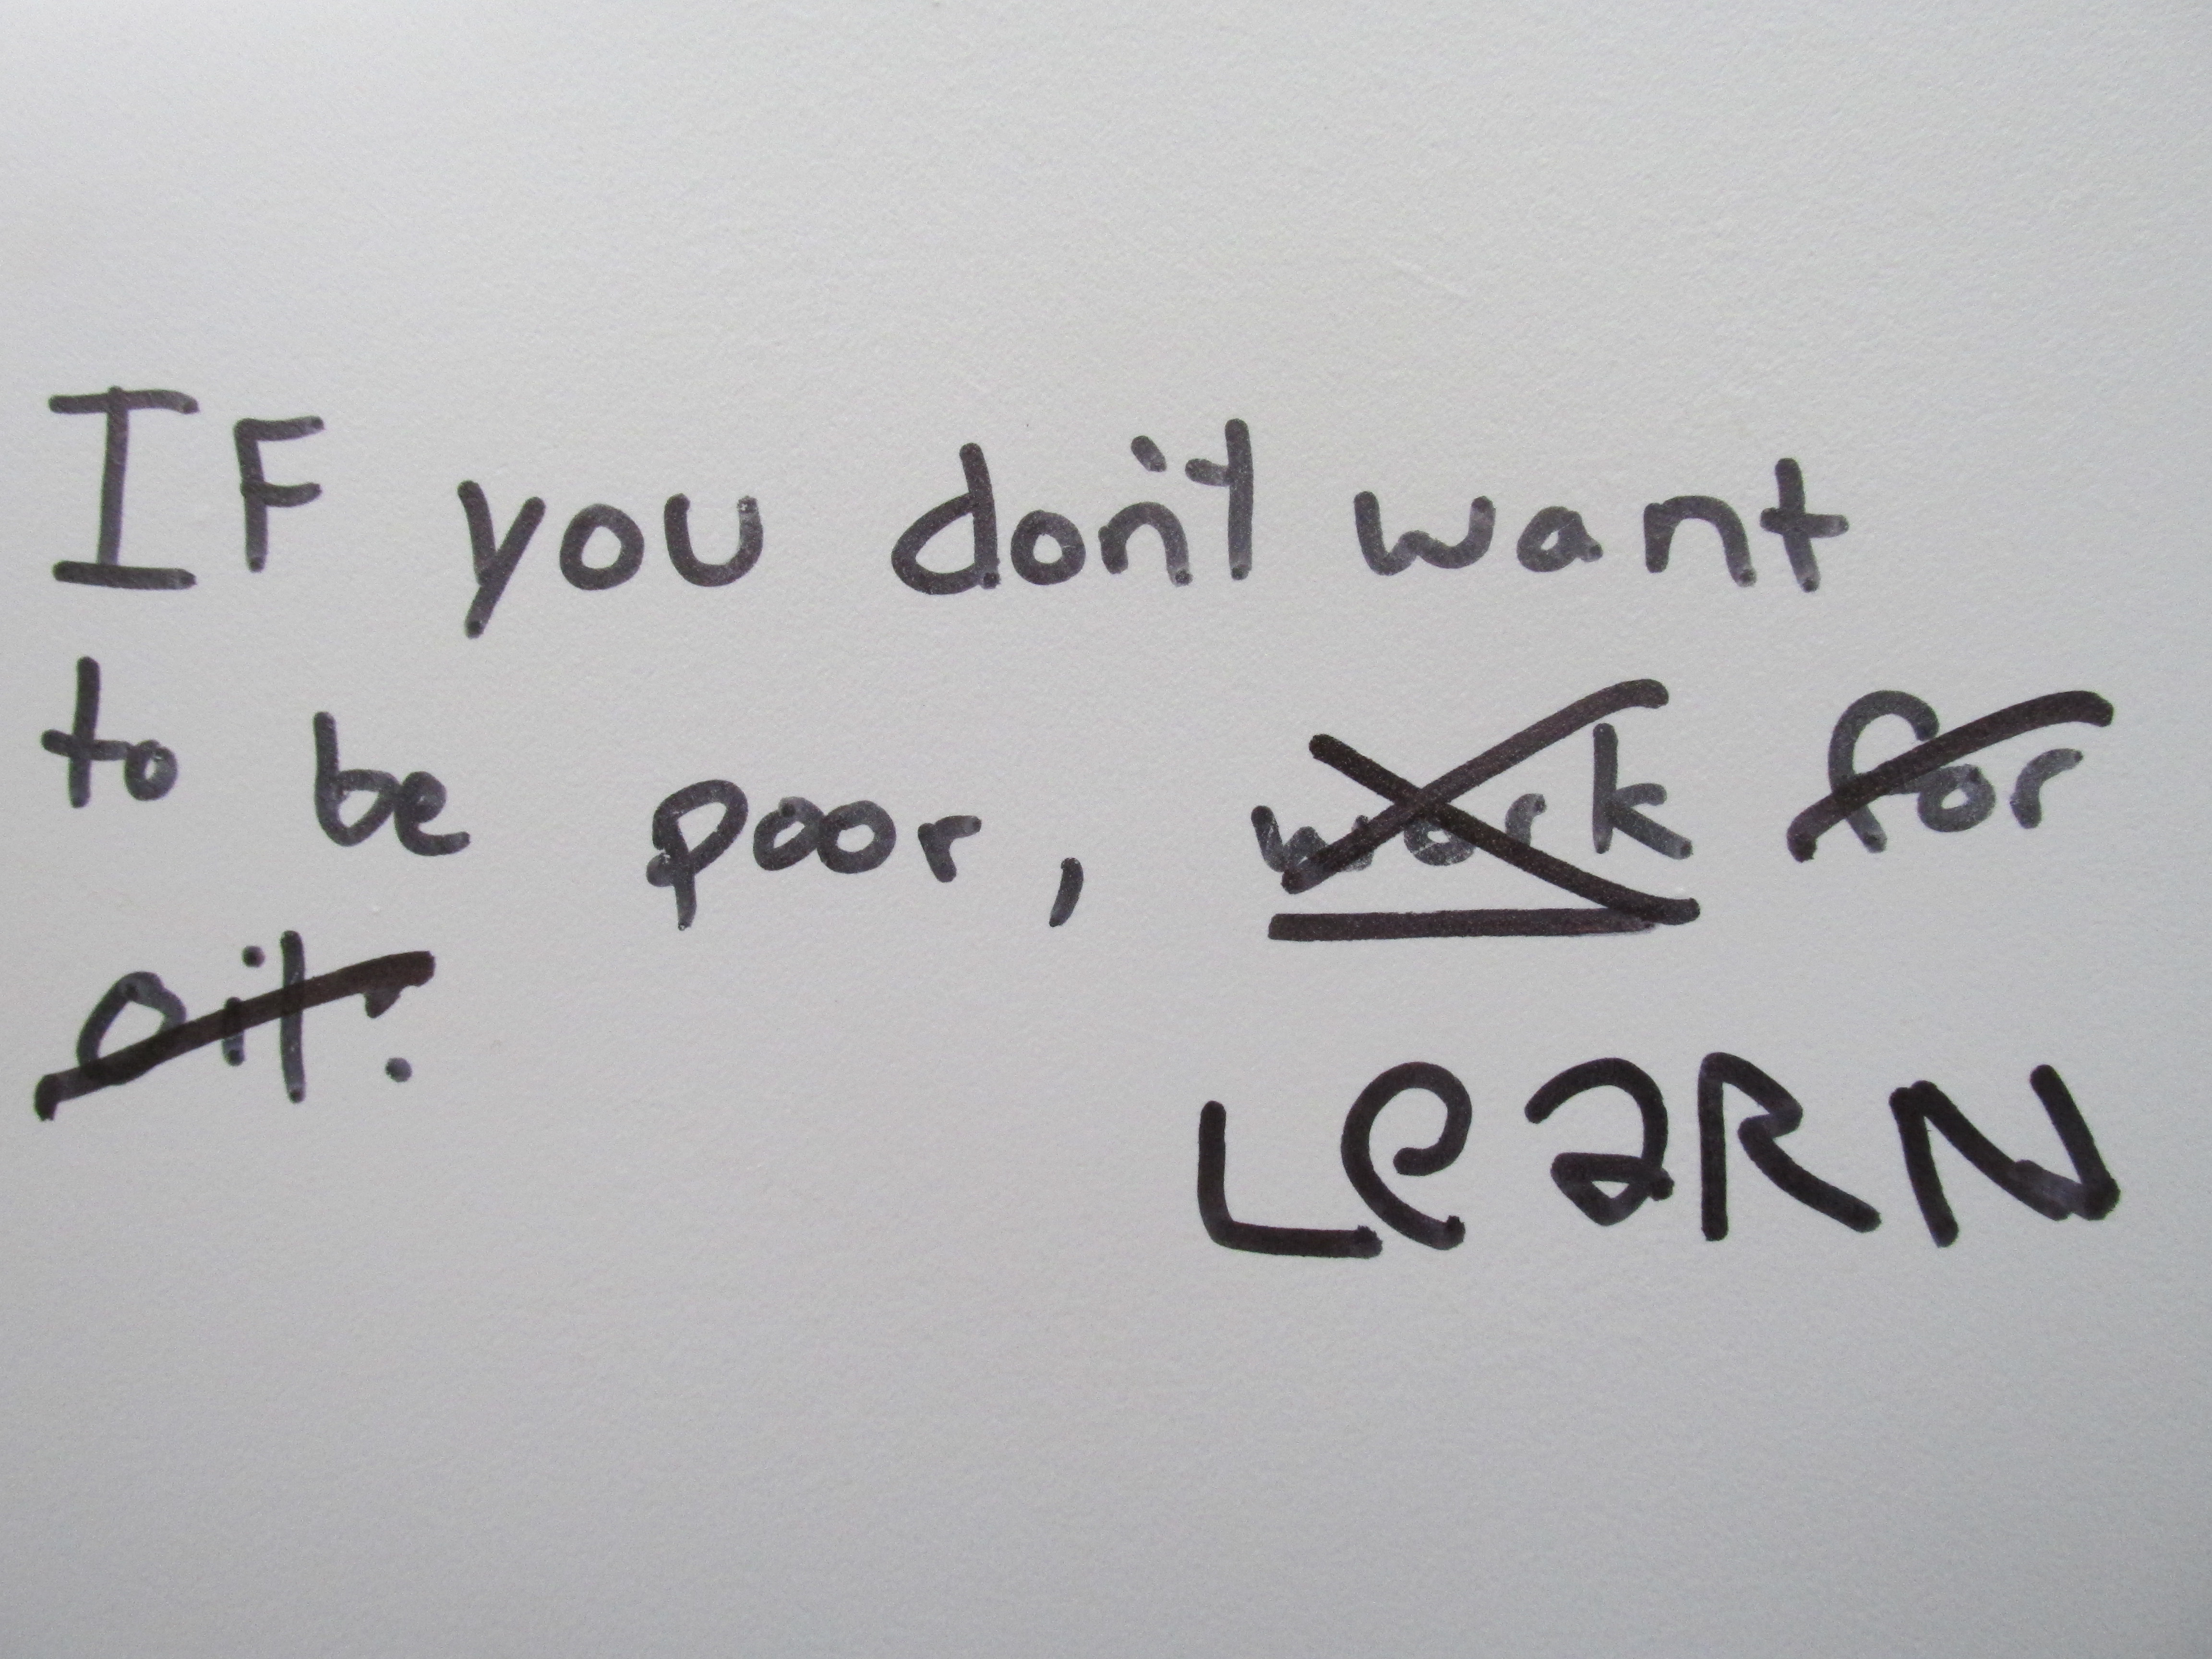 IF you don't want
to be poor, work for
a it:
LeaRN